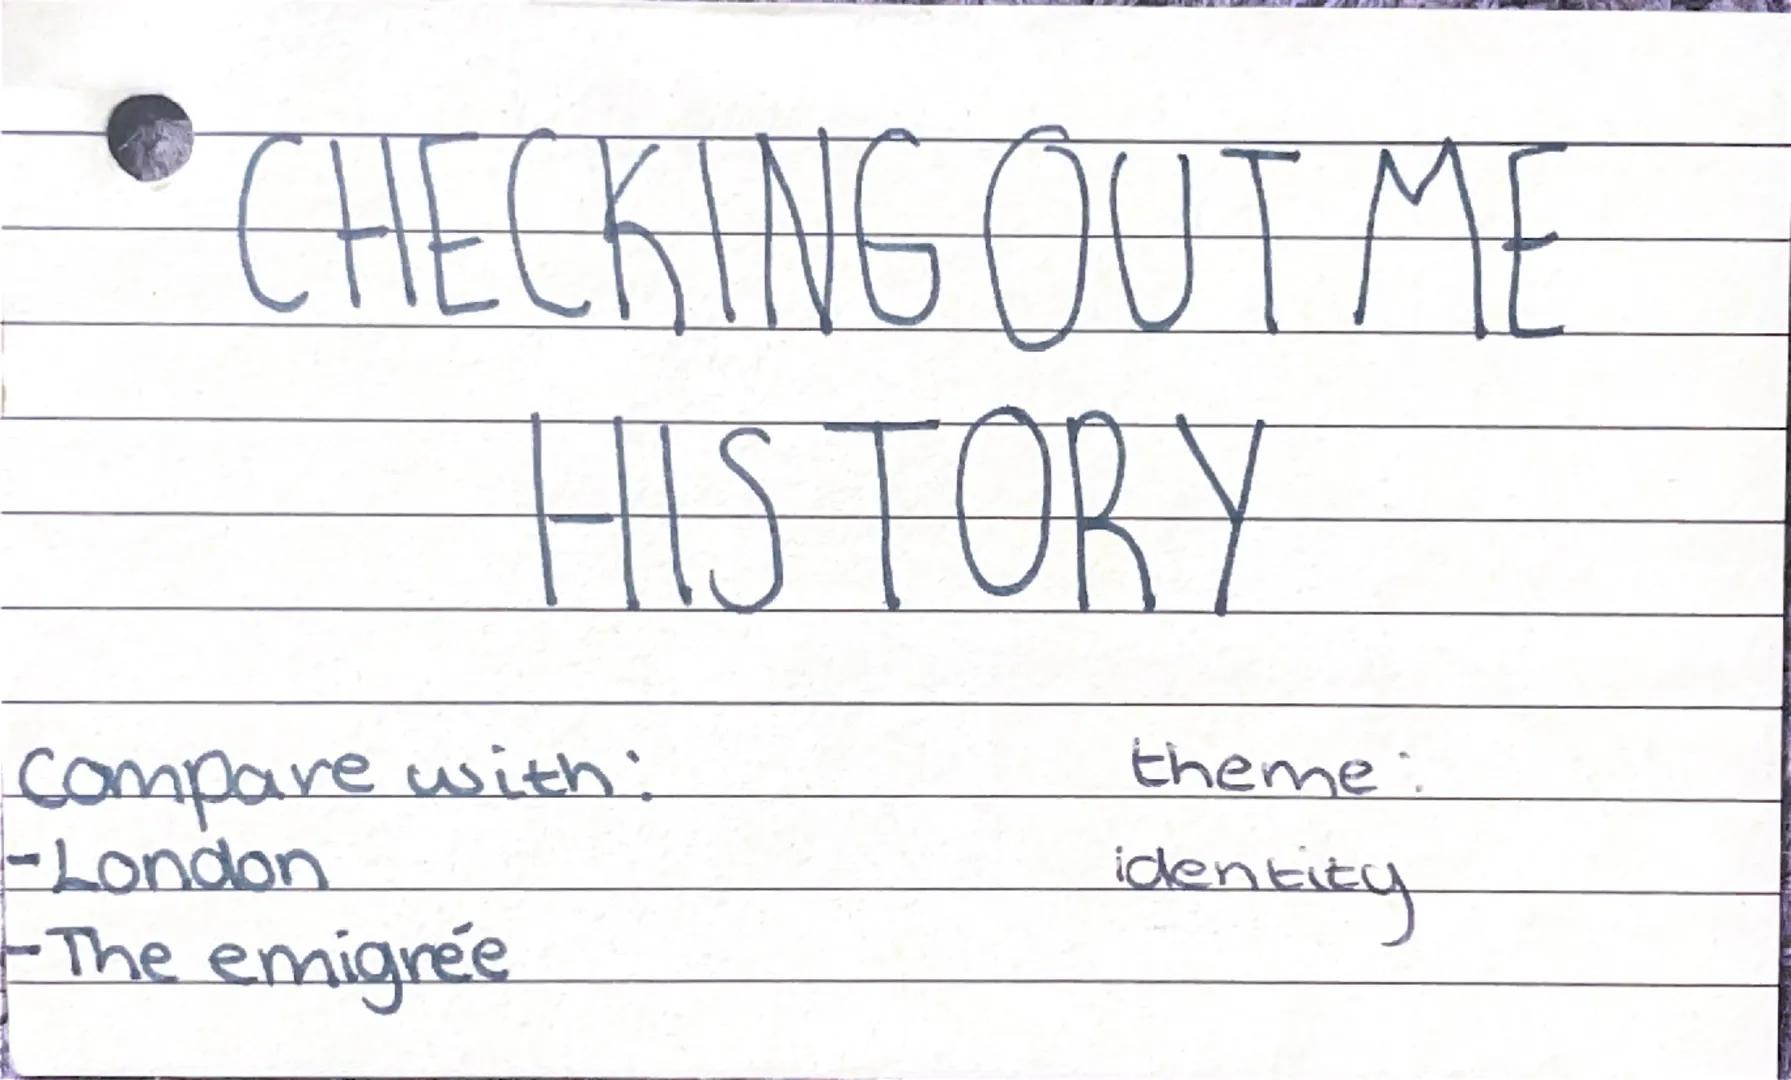 CHECKING OUT ME
HISTORY
Compare with:
theme:
-London
identity
-The emigrée